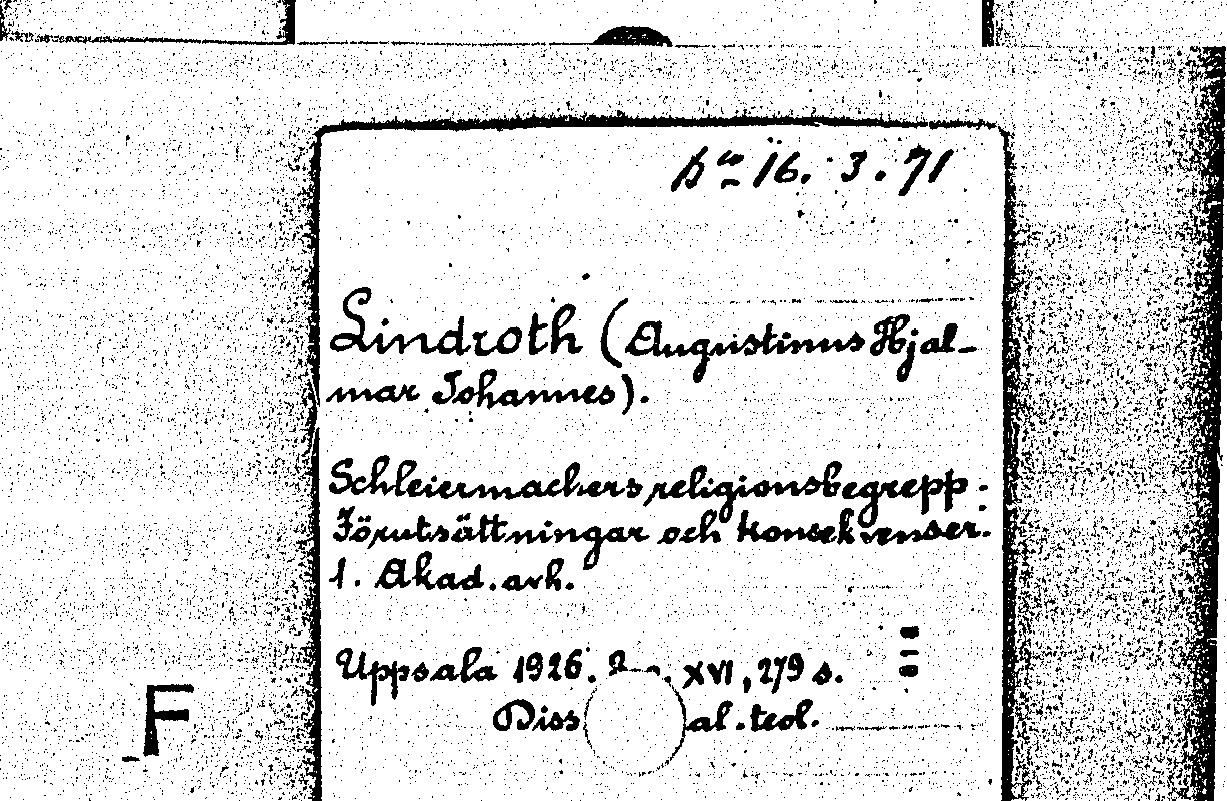 16. 3. 71
Lindroth (Augustinus Hjal-
mar Johannes).
Schleiermachers religionsbegrepp.
Förutsättningar och konsekvenser.
1. Akad. avh.
Uppsala 1926. XVI, 279 s.
Diss al. teol.
F